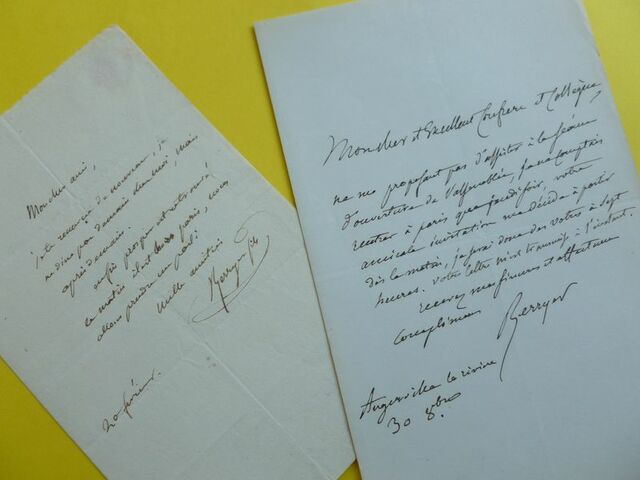 Mon cher ami,
je te remercie de nouveau, je
ne dine pas demain chez moi, mais
après demain.
le matin
allons prendre un parti
Mille amitiés
Berryer fils
20 février.
Mon cher et Excellent Confrère et Collègue
ne me proposant pas d'assister à la séance
d'ouverture de l'assemblée, je ne comptais
rentrer à paris que jeudi soir, votre
amicale invitation me décide à partir
dès le matin, je serai donc des vôtres à sept
heures. votre lettre m'est transmise à l'instant.
recevez mes sincères et affectueux
complimens
Berryer
Angerville la rivière
30 8bre